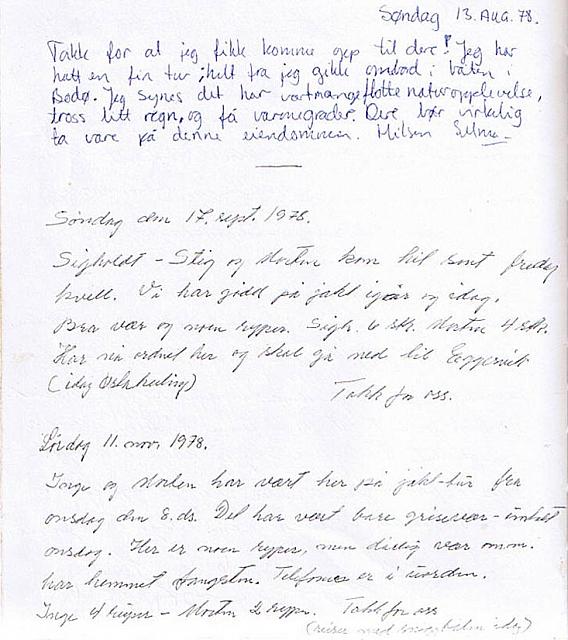 Søndag 13. AUG. 78.
Takk for at jeg fikk komme opp til dere! Jeg har
hatt en fin tur, helt fra jeg gikk ombord i båten i
Bodø. Jeg synes det har vært mange flotte naturopplevelse,
tross litt regn, og få varmegrader. Dere bør virkelig
ta vare på denne eiendommen. Hilsen Selma
Søndag den 17. sept. 1978.
Sigholdt - Stig og Morten kom hit sent fredag
kveld. Vi har gådd på jakt igår og idag.
Bra vær og noen ryper. Sigh. 6 stk. Morten 4 stk.
Har nå ordnet her og skal gå ned til
(idag
Takk for oss.
Lørdag 11. nov. 1978.
Inge og Morten har vært her på jakt-tur fra
onsdag den 8. ds. Det har vært bare grisevær - unntatt
onsdag. Her er noen ryper, men dårlig vær m.m.
har hemmet fangsten. Telefonen er i uorden.
Inge 4 ryper - Morten 2 ryper. Takk for oss
(reiser med idag)